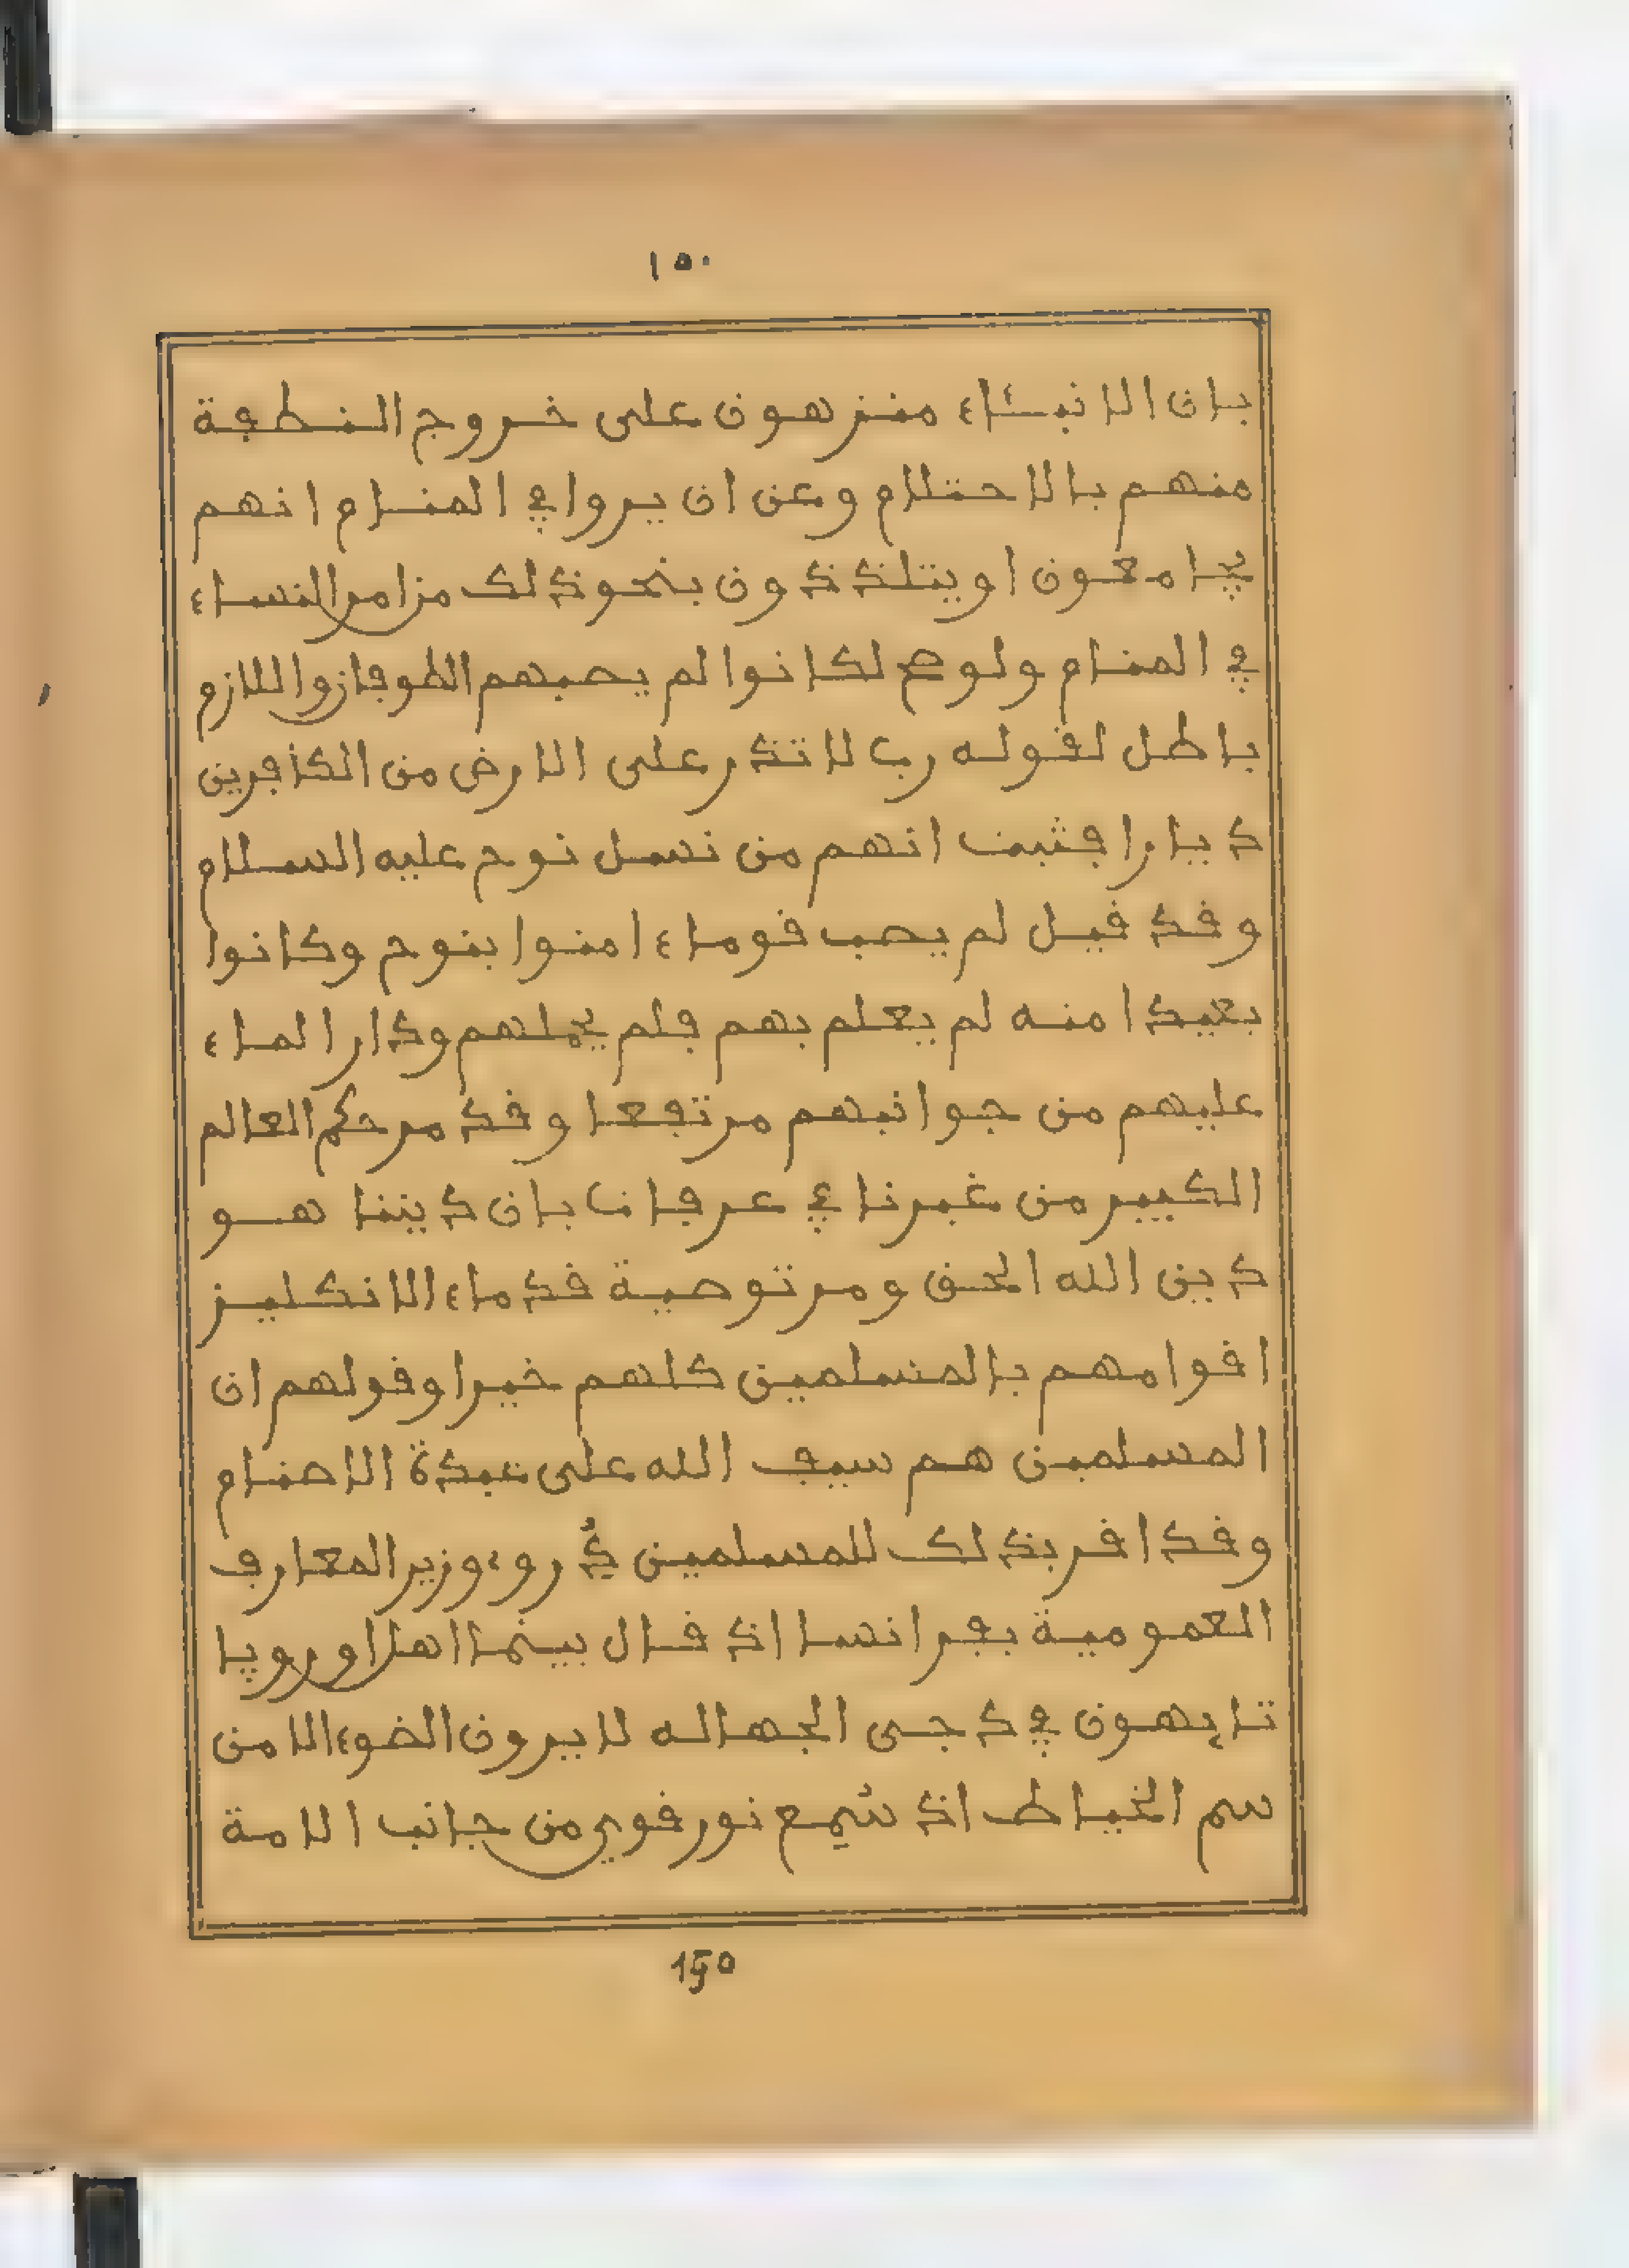 ١٥٠
بان الانبياء منزهون على خروج النطفة
منهم بالاحتلام وعن ان يروا في المنام انهم
يجامعون او يتلذذون بنحو ذلك من امر النساء
في المنام ولو صح لكانوا لم يصبهم الطوفان واللازم
باطل لقوله رب لا تذر على الارض من الكافرين
ديارا فثبت انهم من نسل نوح عليه السلام
وقد قيل لم يصب قوما ءامنوا بنوح وكانوا
بعيدا منه لم يعلم بهم فلم يحملهم ودار الماء
عليهم من جوانبهم مرتفعا وقد مر حكم العالم
الكبير من غيرنا في عرفانا بان ديننا هو
دين الله الحق ومر توصية قدماء الانكليز
اقوامهم بالمسلمين كلهم خيرا وقولهم ان
المسلمين هم سيف الله على عبدة الاصنام
وقد اقر بذلك للمسلمين دُرِوء وزير المعارف
العمومية بفرانسا اذ قال بينما اهل اوروپا
تايهون في دجى الجهاله لا يرون الضوء الا من
سم الخياط اذ سُمِع نور قوي من جانب الامة
150